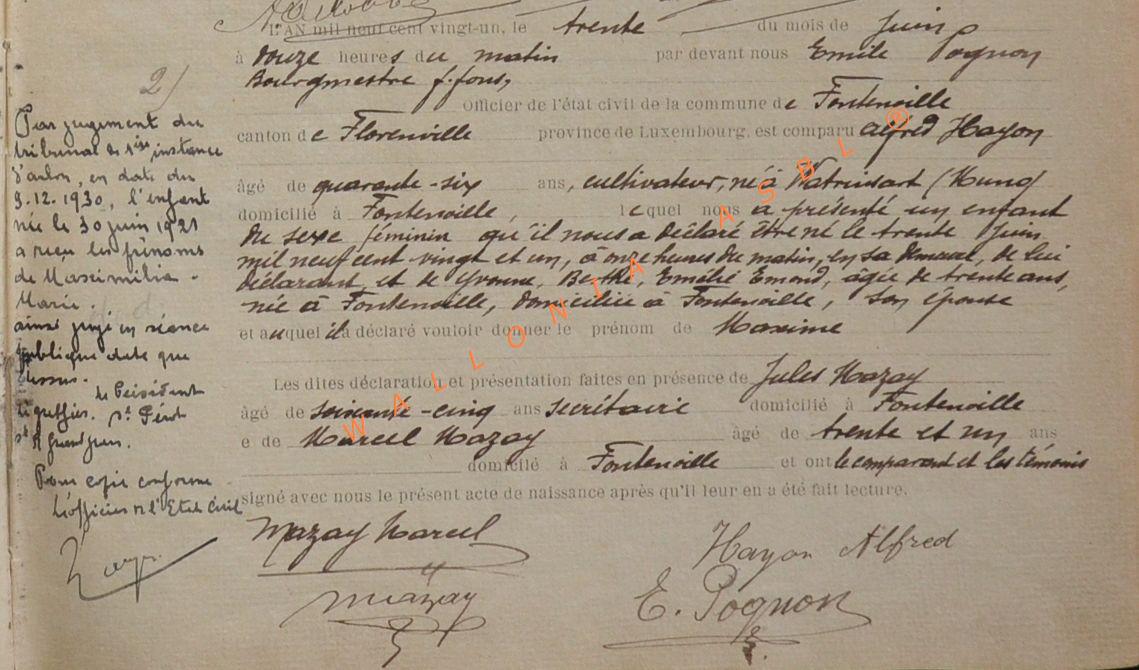 L'AN mil neuf cent vingt-un, le trente du mois de Juin
à douze heures du matin par devant nous Emile Pognon
Bourgmestre f.fons,
Officier de l'état civil de la commune de Fontenoille
canton de Florenville province de Luxembourg, est comparu Alfred Hayon
âgé de quarante-six ans, cultivateur, né à Watrinsart (Muno)
domicilié à Fontenoille, lequel nous a présenté un enfant
du sexe féminin qu'il nous a déclaré être né le trente Juin
mil neuf cent vingt et un, à onze heures du matin, en sa demeure, de lui
déclarant, et de Yvonne, Berthe, Emélie Emond, âgée de trente ans,
née à Fontenoille, domiciliée à Fontenoille, son épouse
et auquel il a déclaré vouloir donner le prénom de Maxime
Les dites déclaration et présentation faites en présence de Jules Mazay
âgé de soixante-cinq ans secrétaire domicilié à Fontenoille
e de Marcel Mazay âgé de trente et un ans
domicilié à Fontenoille et ont le comparant et les témoins
signé avec nous le présent acte de naissance après qu'il leur en a été fait lecture.
Mazay Marcel
Hayon Alfred
Mazay
E. Pognon
2)
Par jugement du
tribunal de 1ère instance
d'Arlon, en date du
9.12.1930, l'enfant
née le 30 juin 1921
a reçu les prénoms
de Maximilia-
Marie.
ainsi jugé en séance
publique date que
dessus.
le Président
Le greffier.
Pour copie conforme
L'officier de l'Etat Civil
WALLONIA ASBL ®